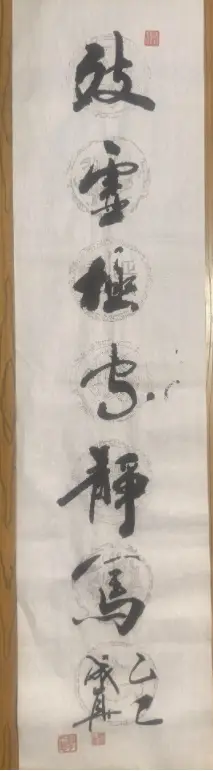 致虛極守靜篤
乙巳